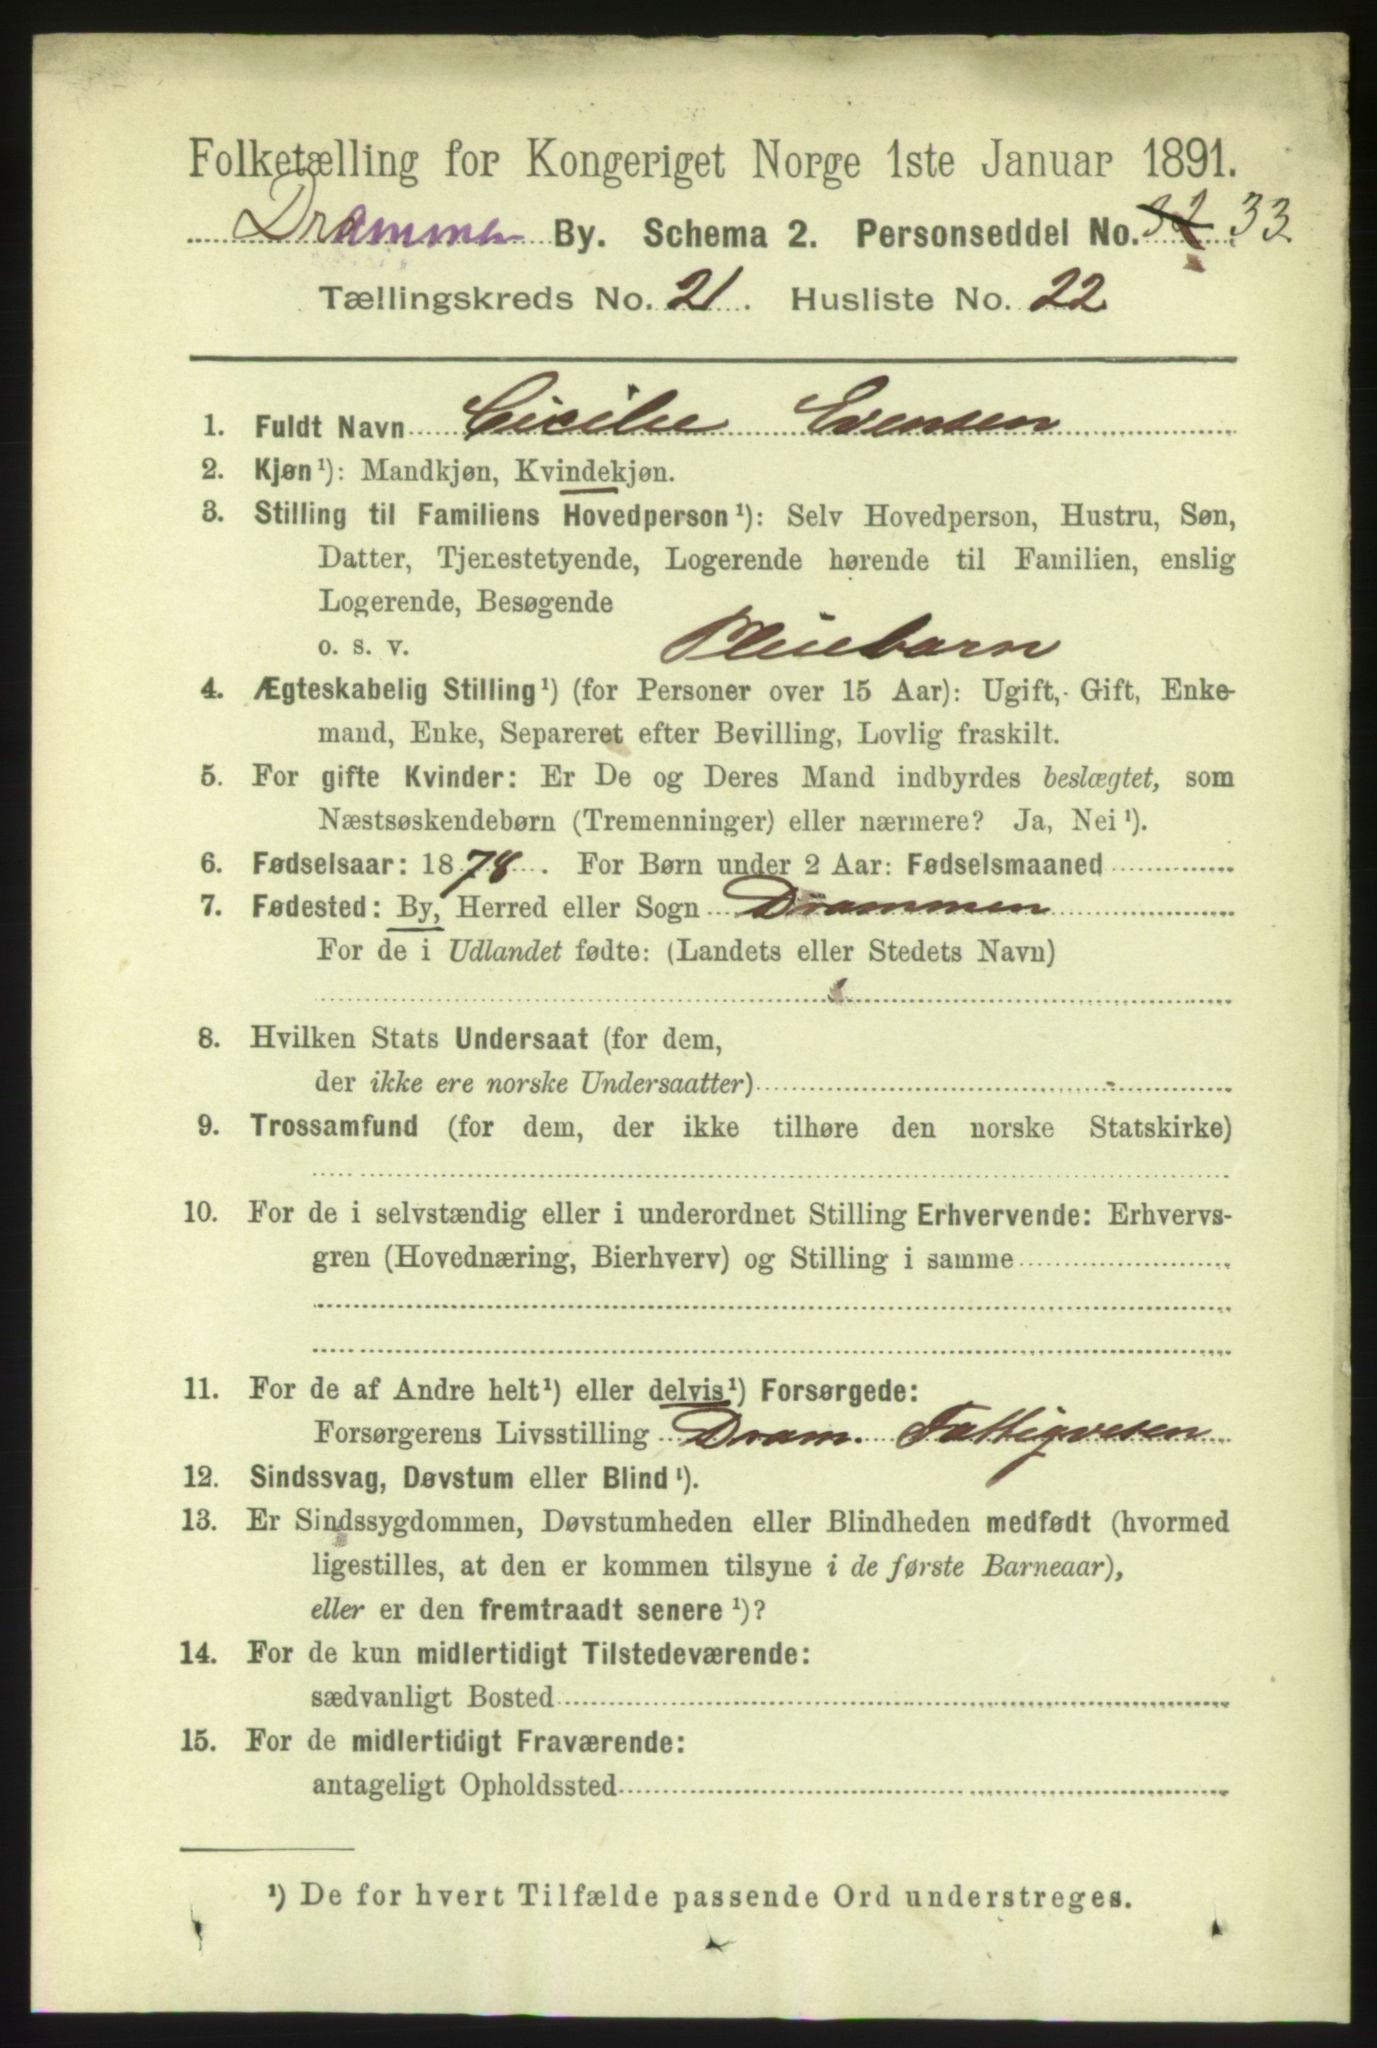 Folketælling for Kongeriget Norge 1ste Januar 1891.
Drammen By. Schema 2. Personseddel No. 32 33
Tællingskreds No. 21. Husliste No. 22
1. Fuldt Navn Cicilie Evensen
2. Kjøn¹): Mandkjøn, Kvindekjøn.
3. Stilling til Familiens Hovedperson¹): Selv Hovedperson, Hustru, Søn,
Datter, Tjenestetyende, Logerende hørende til Familien, enslig
Logerende, Besøgende
o. s. v. Pleiebarn
4. Ægteskabelig Stilling¹) (for Personer over 15 Aar): Ugift, Gift, Enke-
mand, Enke, Separeret efter Bevilling, Lovlig fraskilt.
5. For gifte Kvinder: Er De og Deres Mand indbyrdes beslægtet, som
Næstsøskendebørn (Tremenninger) eller nærmere? Ja, Nei¹).
6. Fødselsaar: 1878. For Børn under 2 Aar: Fødselsmaaned
7. Fødested: By, Herred eller Sogn Drammen
For de i Udlandet fødte: (Landets eller Stedets Navn)
8. Hvilken Stats Undersaat (for dem,
der ikke ere norske Undersaatter)
9. Trossamfund (for dem, der ikke tilhøre den norske Statskirke)
10. For de i selvstændig eller i underordnet Stilling Erhvervende: Erhvervs-
gren (Hovednæring, Bierhverv) og Stilling i samme
11. For de af Andre helt¹) eller delvis¹) Forsørgede:
Forsørgerens Livsstilling Dram. Fattigvesen
12. Sindssvag, Døvstum eller Blind¹).
13. Er Sindssygdommen, Døvstumheden eller Blindheden medfødt (hvormed
ligestilles, at den er kommen tilsyne i de første Barneaar),
eller er den fremtraadt senere¹)?
14. For de kun midlertidigt Tilstedeværende:
sædvanligt Bosted
15. For de midlertidigt Fraværende:
antageligt Opholdssted
¹) De for hvert Tilfælde passende Ord understreges.